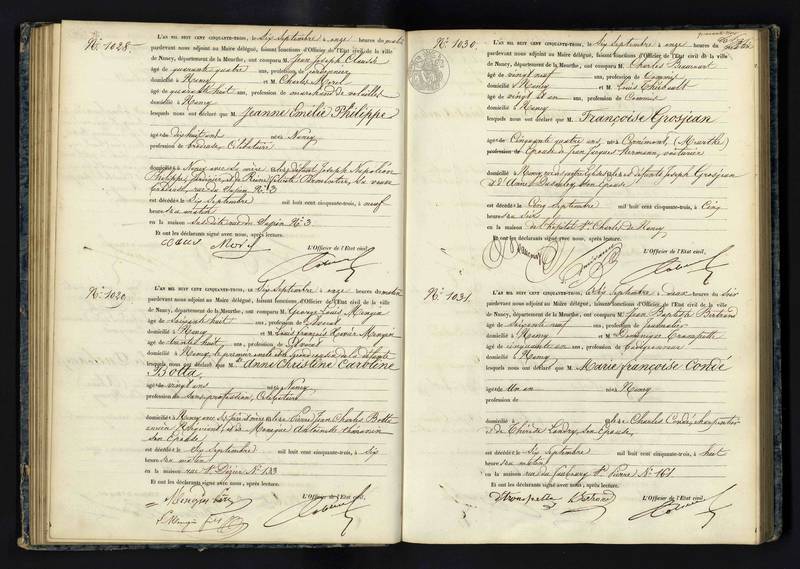 N.° 1028.
L'AN MIL HUIT CENT CINQUANTE-TROIS, le Six Septembre à onze heures du matin
pardevant nous adjoint au Maire délégué, faisant fonctions d'Officier de l'État civil de la ville
de Nancy, département de la Meurthe, ont comparu M. Jean Joseph
âgé de quarante quatre ans, profession de
domicilié à Nancy et M. Charles Morel
âgé de quarante huit ans, profession de marchand de volailles
domicilié à Nancy
lesquels nous ont déclaré que M. Jeanne Emilie Philippe
âgée de dix huit ans née à Nancy
profession de Célibataire
domiciliée à Nancy avec sa mère Joseph Napoléon
Philippe, sa veuve
rue du Sapin N.° 3
est décédée le Six Septembre mil huit cent cinquante-trois, à neuf
heures du matin
en la maison rue du Sapin N.° 3.
Et ont les déclarants signé avec nous, après lecture.
L'Officier de l'Etat civil,
Morel
N.° 1029.
L'AN MIL HUIT CENT CINQUANTE-TROIS, le Six Septembre à onze heures du matin
pardevant nous adjoint au Maire délégué, faisant fonctions d'Officier de l'État civil de la ville
de Nancy, département de la Meurthe, ont comparu M. George Louis Mengin
âgé de soixante huit ans, profession de avocat
domicilié à Nancy et M. Louis François Xavier Mengin
âgé de trente huit ans, profession de avocat
domicilié à Nancy, le premier oncle et le second cousin de la défunte
lesquels nous ont déclaré que M. Anne Christine Caroline
Botta,
âgée de vingt ans née à Nancy
profession de sans profession, Célibataire
domiciliée à Nancy avec ses père et mère Pierre Jean Charles Botta
ancien et de Monique Antoinette
son Épouse
est décédée le Six Septembre mil huit cent cinquante-trois, à six
heures du matin
en la maison rue St Dizier N.° 133
Et ont les déclarants signé avec nous, après lecture.
L'Officier de l'Etat civil,
Mengin
L. Mengin fils
N.° 1030.
L'AN MIL HUIT CENT CINQUANTE-TROIS, le Six Septembre à onze heures du matin
pardevant nous adjoint au Maire délégué, faisant fonctions d'Officier de l'État civil de la ville
de Nancy, département de la Meurthe, ont comparu M. Charles
âgé de vingt neuf ans, profession de Commis
domicilié à Nancy et M. Louis
âgé de vingt et un ans, profession de Commis
domicilié à Nancy
lesquels nous ont déclaré que M. Françoise Grosjean
âgée de Cinquante quatre ans, née à (Meurthe)
profession de Épouse de Jean Jacques Hermann, voiturier
domiciliée à Nancy Joseph Grosjean
et d'Anne son Épouse
est décédée le Cinq Septembre mil huit cent cinquante-trois, à Cinq
heures du soir
en la maison de l'hôpital St Charles de Nancy
Et ont les déclarants signé avec nous, après lecture.
L'Officier de l'Etat civil,
N.° 1031.
L'AN MIL HUIT CENT CINQUANTE-TROIS, le Six Septembre à deux heures du soir
pardevant nous adjoint au Maire délégué, faisant fonctions d'Officier de l'État civil de la ville
de Nancy, département de la Meurthe, ont comparu M. Jean Baptiste Bertrand
âgé de soixante neuf ans, profession de Journalier
domicilié à Nancy et M. Dominique
âgé de cinquante un ans, profession de
domicilié à Nancy
lesquels nous ont déclaré que M. Marie françoise Condé
âgée de Un an née à Nancy
profession de
domiciliée à de Charles Condé, charpentier
et de Thérèse Landry, son Épouse
est décédée le Six Septembre mil huit cent cinquante-trois, à huit
heures du matin
en la maison rue du faubourg St Pierre N.° 161
Et ont les déclarants signé avec nous, après lecture.
L'Officier de l'Etat civil,